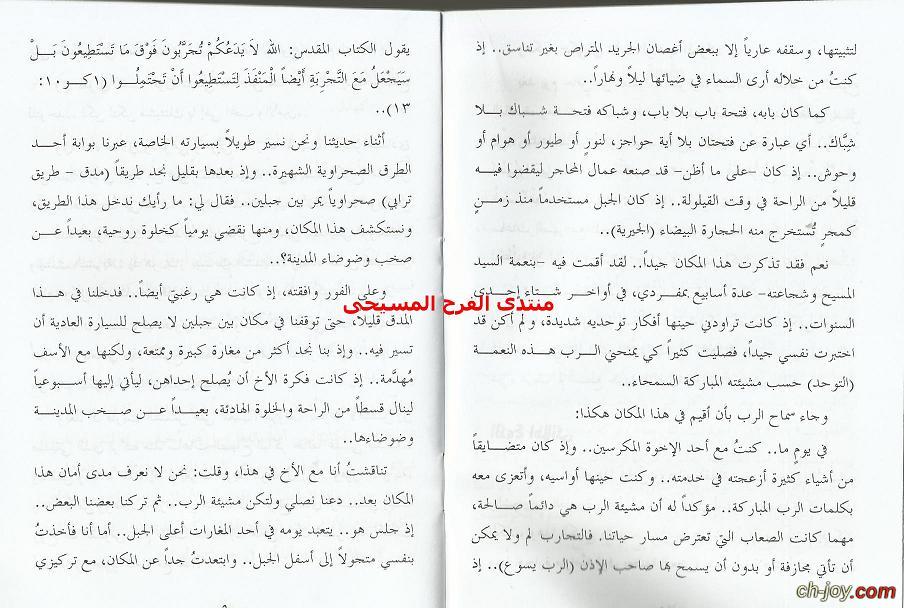 لتثبيتها، وسقفه عارياً إلا ببعض أغصان الجريد المتراص بغير تناسق.. إذ
كنتُ من خلاله أرى السماء في ضيائها ليلاً ونهاراً..
كما كان بابه، فتحة باب بلا باب، وشباكه فتحة شباك بلا
شبَّاك.. أي عبارة عن فتحتان بلا أية حواجز، لنورٍ أو طيور أو هوام أو
وحوش.. إذ كان -على ما أظن- قد صنعه عمال المحاجر ليقضوا فيه
قليلاً من الراحة في وقت القيلولة.. إذ كان الجبل مستخدماً منذ زمنٍ
كمجرٍ تُستخرج منه الحجارة البيضاء (الجيرية)..
نعم فقد تذكرت هذا المكان جيداً.. لقد أقمت فيه -بنعمة السيد
المسيح وشجاعته- عدة أسابيع بمفردي، في أواخر شتاء إحدى
السنوات.. إذ كانت تراودني حينها أفكار توحديه شديدة، ولم أكن قد
اختبرت نفسي جيداً، فصليت كثيراً كي يمنحني الرب هذه النعمة
(التوحد) حسب مشيئته المباركة السمحاء..
وجاء سماح الرب بأن أقيم في هذا المكان هكذا:
في يومٍ ما.. كنتُ مع أحد الإخوة المكرسين.. وإذ كان متضايقاً
من أشياء كثيرة أزعجته في خدمته.. وكنت حينها أواسيه، وأتعزى معه
بكلمات الرب المباركة.. مؤكداً له أن مشيئة الرب هي دائماً صالحة،
مهما كانت الصعاب التي تعترض مسار حياتنا. فالتجارب لم ولا يمكن
أن تأتي بمجازفة أو بدون أن يسمح بها صاحب الإذن (الرب يسوع).. إذ
يقول الكتاب المقدس: الله لاَ يَدَعُكُمْ تُجَرَّبُونَ فَوْقَ مَا تَسْتَطِيعُونَ بَلْ
سَيَجْعَلُ مَعَ التَّجْرِبَةِ أَيْضاً الْمَنْفَذَ لِتَسْتَطِيعُوا أَنْ تَحْتَمِلُوا (١كو١٠:
١٣)..
أثناء حديثنا ونحن نسير طويلاً بسيارته الخاصة، عبرنا بوابة أحد
الطرق الصحراوية الشهيرة.. وإذ بعدها بقليل نجد طريقاً (مدق - طريق
ترابي) صحراوياً يمر بين جبلين.. فقال لي: ما رأيك ندخل هذا الطريق،
ونستكشف هذا المكان، ومنها نقضي يومياً كخلوة روحية، بعيداً عن
صخب وضوضاء المدينة؟..
وعلى الفور وافقته، إذ كانت هي رغبتي أيضاً.. فدخلنا في هذا
المدق قليلاً، حتى توقفنا في مكان بين جبلين لا يصلح للسيارة العادية أن
تسير فيه.. وإذ بنا نجد أكثر من مغارة كبيرة وممتعة، ولكنها مع الأسف
مُهدَّمة.. إذ كانت فكرة الأخ أن يُصلح إحداهن، ليأتي إليها أسبوعياً
لينال قسطاً من الراحة والخلوة الهادئة، بعيداً عن صخب المدينة
وضوضاءها..
تناقشتُ أنا مع الأخ في هذا، وقلت: نحن لا نعرف مدى أمان هذا
المكان بعد.. دعنا نصلي ولتكن مشيئة الرب.. ثم تركنا بعضنا البعض..
إذ جلس هو.. يتعبد يومه في أحد المغارات أعلى الجبل.. أما أنا فأخذتُ
بنفسي متجولاً إلى أسفل الجبل.. وابتعدتُ جداً عن المكان، مع تركيزي
منتدى الفرح المسيحى
ch-joy.com